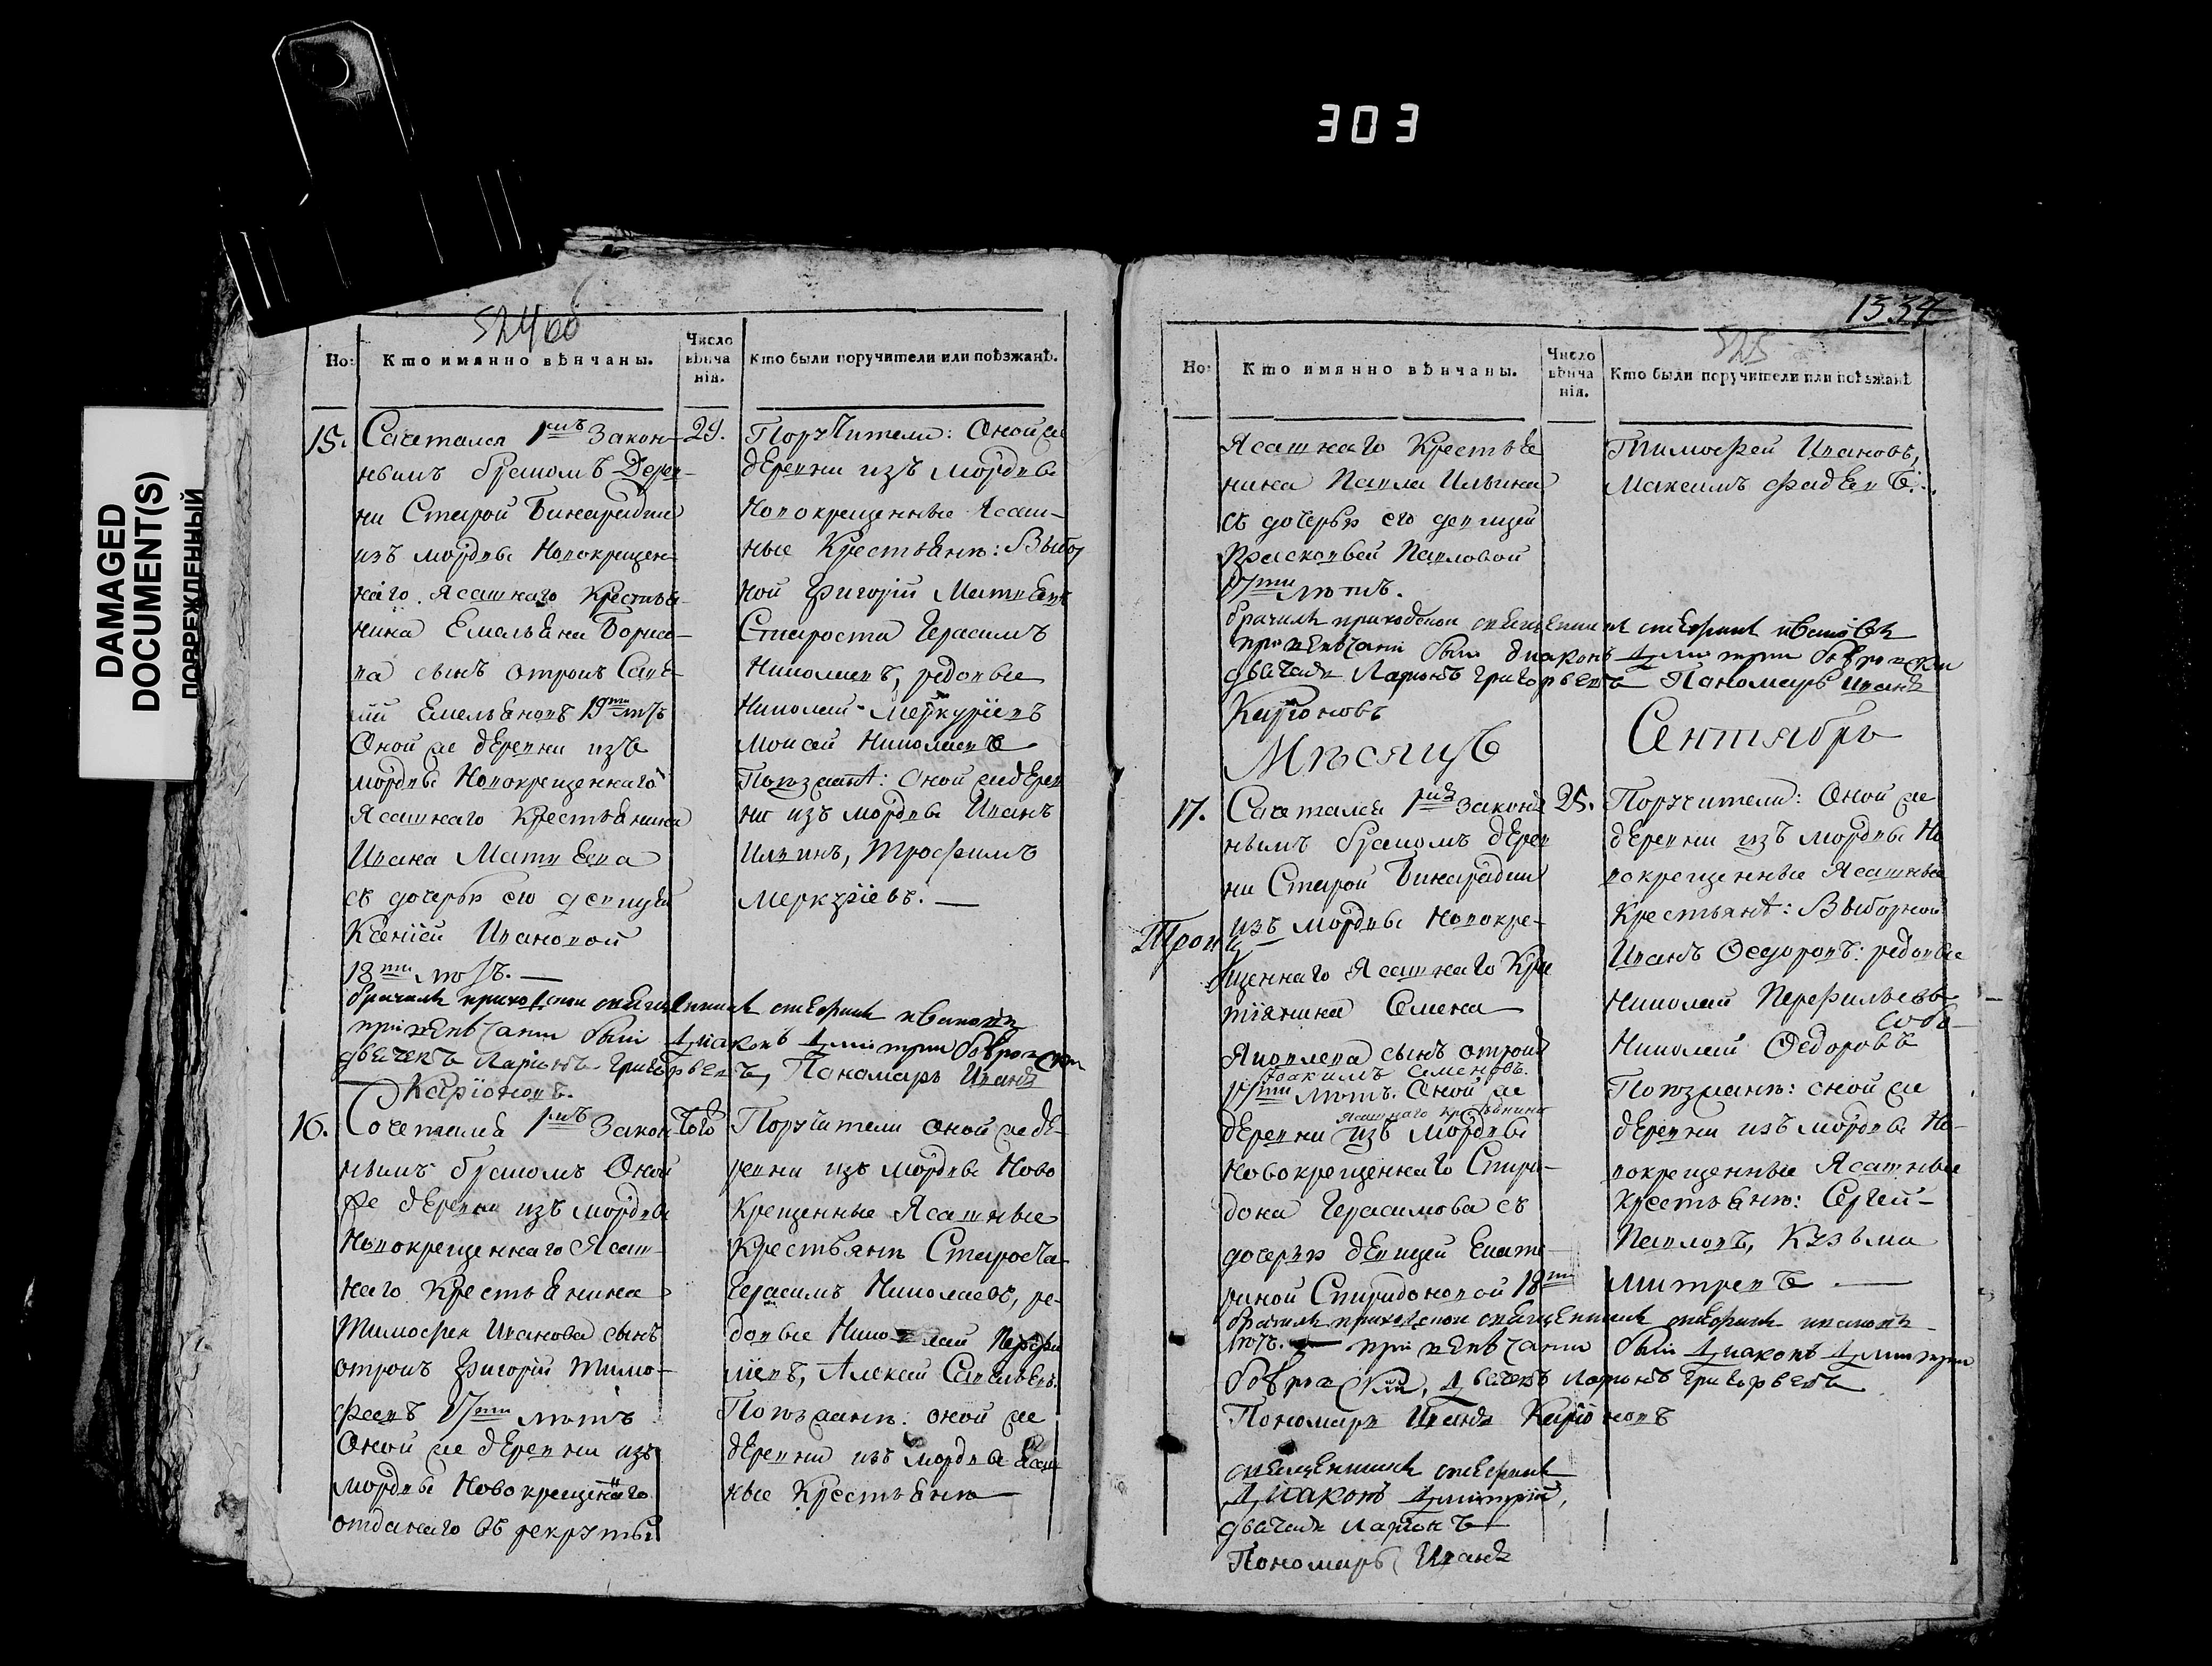 303
DAMAGED
DOCUMENT(S)
ПОВРЕЖДЕННЫЙ
524об
Но:
Кто имянно вѣнчаны.
Число
вѣнча
нія.
Кто были поручители или поѣзжанѣ.
15.
Сачетался 1мъ Закон-
нымъ бракомъ Дерев-
ни Старой Бинарадки
изъ мордвы Новокрещен-
наго Ясашнаго Крестья-
нина Емельяна Бориса-
ва сынъ отрокъ Саве-
лій Емельяновъ 19ти лѣтъ
Оной же деревни изъ
мордвы Новокрещеннаго
Ясашнаго Крестьянина
Ивана Матвеева
съ дочерью его девицей
Ксеніей Ивановой
18ти лѣтъ.
29.
Поручители: Оной же
деревни изъ мордвы
Новокрещенные Ясаш-
ные Крестьянѣ: Выбор
ной Григорій Матвеевъ
Староста Герасимъ
Николаевъ, редовые
Николай Меркуріевъ
Моисей Николаевъ
Поѣзжанѣ: Оной же дерев
ни изъ мордвы Иванъ
Илвинъ, Трофимъ
Меркуріевъ.
брачилъ приходской священникъ Ивановъ
при венчании былъ Диаконъ Дмитрий
дьячекъ Ларіонъ Григорьевъ, Панамарь Иванъ
Каріоновъ.
16.
Сочетался 1мъ Закон
нымъ бракомъ Оной
же деревни изъ мордвы
Новокрещеннаго Ясаш-
наго Крестьянина
Тимофея Иванова сынъ
отрокъ Григорій Тимо-
феевъ 17ти лѣтъ
Оной же деревни изъ
мордвы Новокрещеннаго
отданаго въ рекруты
Того
Поручители оной же де-
ревни изъ мордвы Ново
Крещенные Ясашные
Крестьянѣ Староста
Герасимъ Николаевъ, ре-
довые Николай Перфи
лievъ, Алексей Савельевъ.
Поѣзжанѣ: оной же
деревни изъ мордвы Ясаш
ные Крестьянѣ
1334
525
Но:
Кто имянно вѣнчаны.
Число
вѣнча
нія.
Кто были поручители или поѣзжанѣ
Ясашнаго Крестья
нина Павла Ильина
съ дочерью его девицей
Прасковьей Павловой
17ти лѣтъ.
Тимофей Ивановъ,
Максимъ Фадеевъ.
брачилъ приходской священникъ Ивановъ
при венчании былъ диаконъ Дмитрий
дьячекъ Ларіонъ Григорьевъ Панамарь Иванъ
Каріоновъ
Мѣсяцъ
Сентябрь
17.
Сачетался 1мъ Закон
нымъ бракомъ дерев
ни Старой Бинарадки
изъ мордвы Новокре-
щеннаго Ясашнаго Кре
тіянина Семена
Яковлева сынъ отрокъ
Іоакимъ Семеновъ.
17ти лѣтъ. Оной же
ясашнаго крестьянина
деревни изъ мордвы
Новокрещеннаго Спири-
дона Герасимова съ
дочерью девицей Екате-
риной Спиридоновой 18ти
лѣтъ.
25.
Поручители: Оной же
деревни изъ мордвы Но
вокрещенные Ясашные
Крестьянѣ: Выборной
Иванъ Федоровъ: редовые
Николай Перфильевъ
Николай Федоровъ
Поѣзжанѣ: оной же
деревни изъ мордвы Но-
вокрещенные Ясашные
Крестьянѣ: Сергей
Павловъ, Кузьма
Митревъ
брачилъ приходской священникъ Ивановъ
при венчании былъ Диаконъ Дмитрий
дьячекъ Ларіонъ Григорьевъ
Пономарь Иванъ Каріоновъ
священникъ
Диаконъ Дмитрій,
дьячекъ Ларіонъ
Пономарь Иванъ